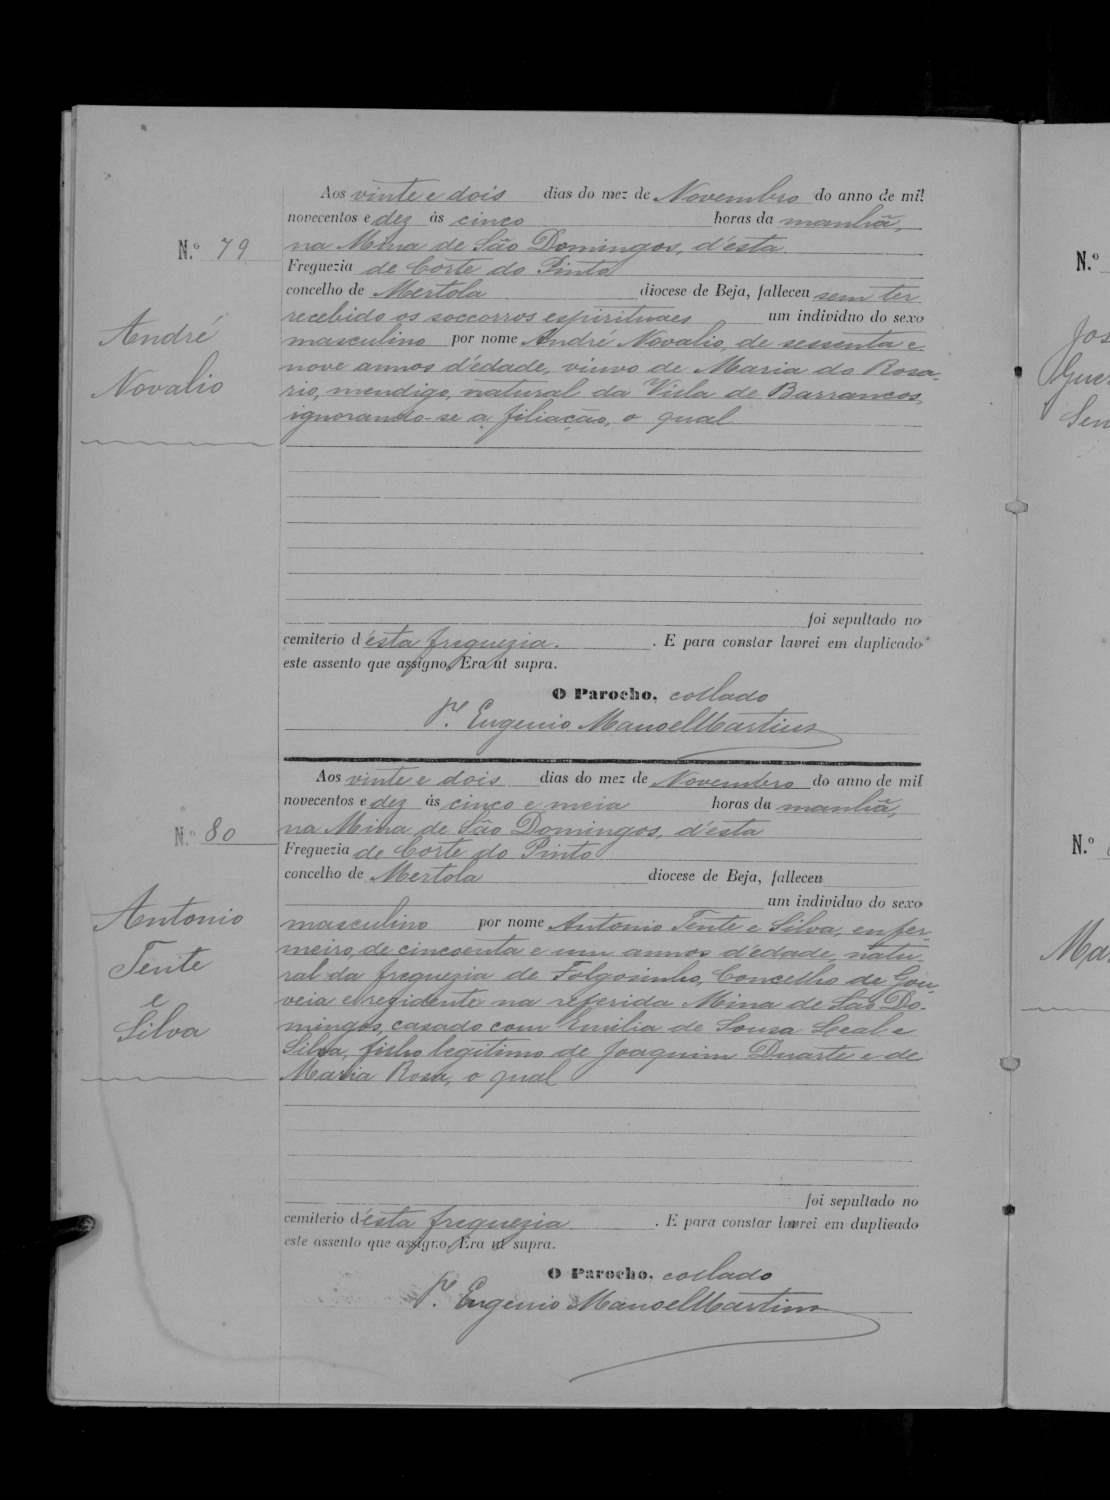 Aos vinte e dois dias do mez de Novembro do anno de mil
novecentos e dez ás cinco horas da manhã,
Nº 79
na Mina de São Domingos, d'esta
Freguezia de Corte do Pinto
concelho de Mertola diocese de Beja, falleceu sem ter
recebido os soccorros espirituaes um individuo do sexo
André
Novalio
masculino por nome André Novalio, de sessenta e
nove annos d'edade, viuvo de Maria do Rosa-
rio, mendigo, natural da Villa de Barrancos,
ignorando-se a filiação, o qual
foi sepultado no
cemiterio d'ésta freguezia. . E para constar lavrei em duplicado
este assento que assigno. Era ut supra.
O Parocho, collado
P.e Eugenio Manoel Martins
Aos vinte e dois dias do mez de Novembro do anno de mil
novecentos e dez ás cinco e meia horas da manhã,
N.º 80
na Mina de São Domingos, d'esta
Freguezia de Corte do Pinto
concelho de Mertola diocese de Beja, falleceu
um individuo do sexo
Antonio
Tente
e
Silva
masculino por nome Antonio Tente e Silva, enfer-
meiro, de cincoenta e um annos d'edade, natu-
ral da freguezia de Folgosinho, Concelho de Gou-
veia e residente na referida Mina de São Do-
mingos, casado com Emilia de Sousa Leal e
Silva, filho legitimo de Joaquim Duarte e de
Maria Rosa, o qual
foi sepultado no
cemiterio d'ésta freguezia . E para constar lavrei em duplicado
este assento que assigno. Era ut supra.
O Parocho, collado
P.e Eugenio Manoel Martins
N.º
Nº